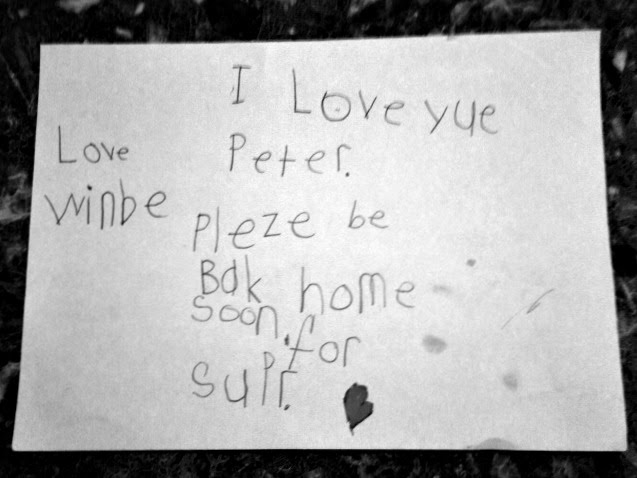 I Love yue
Peter.
Pleze be
Bak home
soon. for
supr.
Love
Winbe